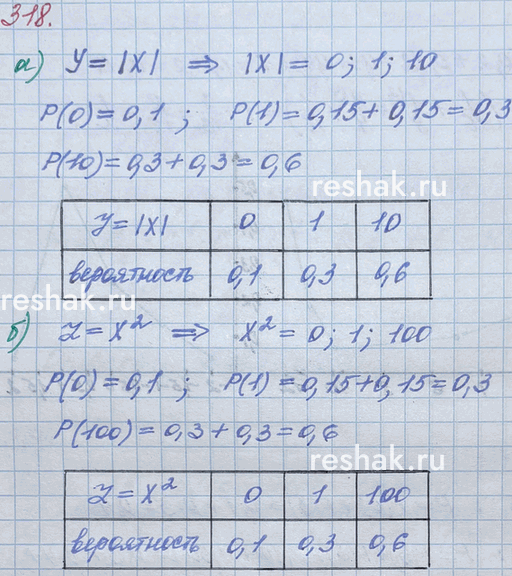 318.
а) Y = |X| ⇒ |X| = 0; 1; 10
P(0) = 0,1 ; P(1) = 0,15 + 0,15 = 0,3
P(10) = 0,3 + 0,3 = 0,6
reshak.ru
Y = |X| 0 1 10
вероятность 0,1 0,3 0,6
reshak.ru
б) Z = X² ⇒ X² = 0; 1; 100
P(0) = 0,1 ; P(1) = 0,15 + 0,15 = 0,3
P(100) = 0,3 + 0,3 = 0,6
reshak.ru
Z = X² 0 1 100
вероятность 0,1 0,3 0,6